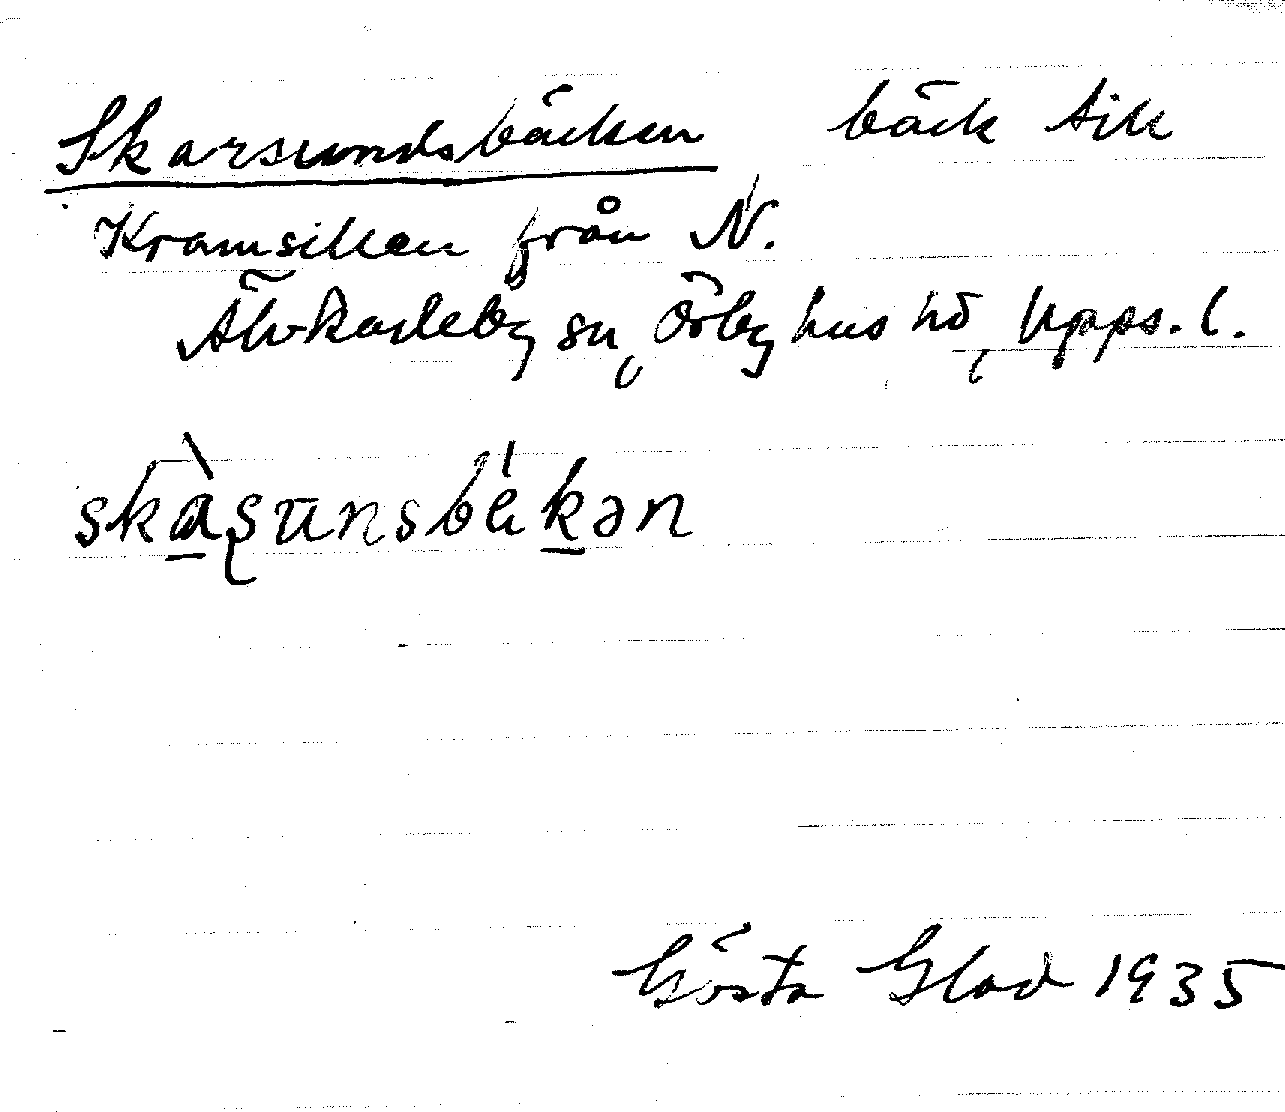 Skarsundsbäcken bäck till
Kramsiken från N.
Älvkarleby sn, Örbyhus hd, Upps. l.
skàʂunsbékən
Gösta Glad 1935